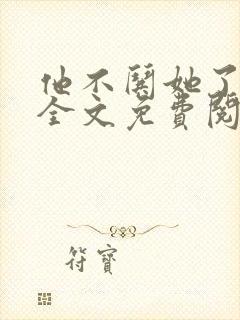 他不闻她了
全文免费阅
符寶